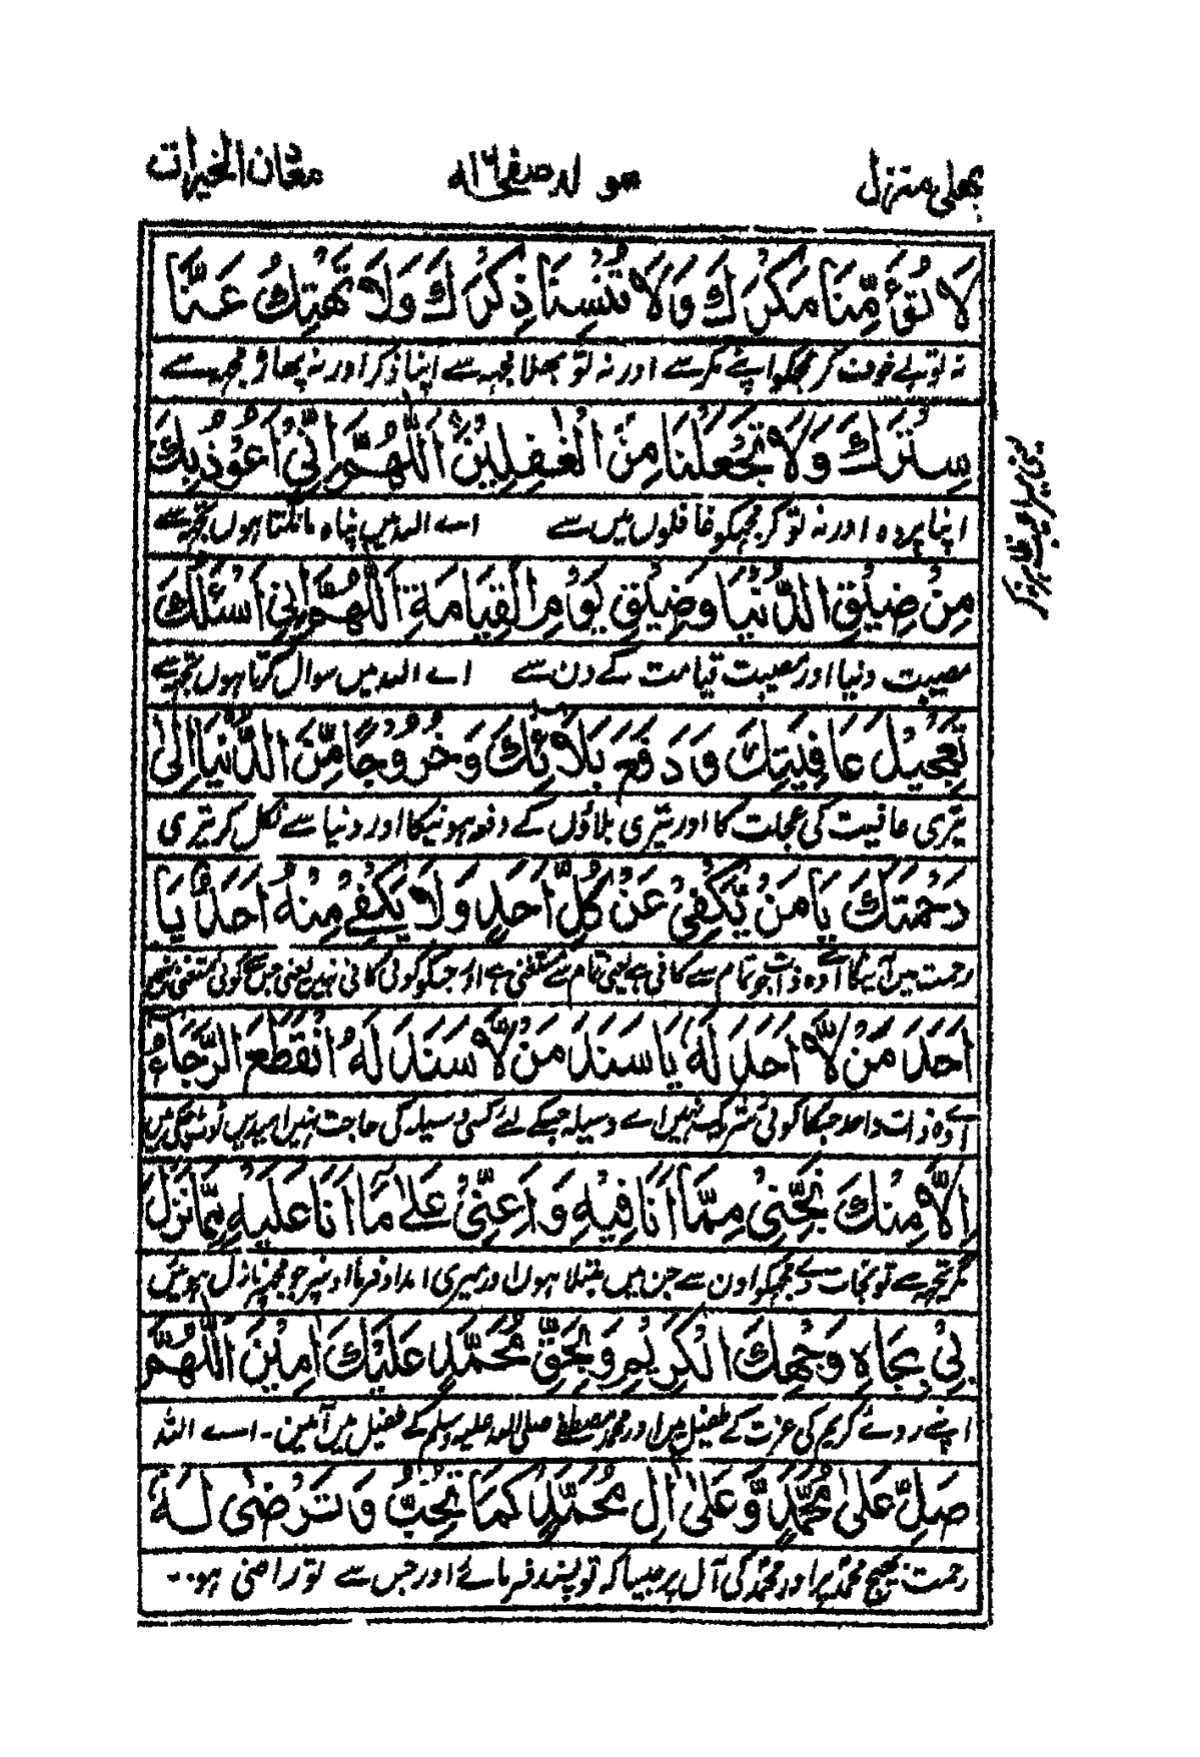 پہلی منزل
سولہ صفحہ ۱۶
معان الخیرات
لَا تُؤَمِّنَا مَكْرَكَ وَلَا تُنْسِنَا ذِكْرَكَ وَلَا تَهْتِكُ عَنَّا
نہ تو بے خوف کر مجھکو اپنے مکر سے اور نہ تو بھلا مجھہ سے اپنا ذکر اور نہ پھاڑ مجھہ سے
سِتْرَكَ وَلَا تَجْعَلْنَا مِنَ الْغٰفِلِيْنَ اَللّٰهُمَّ اِنِّيْ اَعُوْذُ بِكَ
اپنا پردہ اور نہ تو کر مجھکو غافلوں میں سے اے اللہ میں پناہ مانگتا ہوں تجھ سے
مِنْ ضِيْقِ الدُّنْيَا وَضِيْقِ يَوْمِ الْقِيَامَةِ اَللّٰهُمَّ اِنِّي اَسْئَلُكَ
مصیبت دنیا اور مصیبت قیامت کے دن سے اے اللہ میں سوال کرتا ہوں تجھ سے
تَعْجِيْلَ عَافِيَتِكَ وَدَفْعَ بَلَائِكَ وَخُرُوْجًا مِّنَ الدُّنْيَا اِلٰى
تیری عافیت کی عجلت کا اور تیری بلاؤں کے دفعہ ہونیکا اور دنیا سے نکل کر تیری
رَحْمَتِكَ يَا مَنْ يَكْفِيْ عَنْ كُلِّ اَحَدٍ وَلَا يَكْفِيْ مِنْهُ اَحَدٌ يَا
رحمت میں آنیکا اے وہ ذات جو تمام سے کافی ہے یعنی تمام سے مستغنی ہے اور جسکو کوئی کافی نہیں یعنی جس سے کوئی مستغنی نہیں
اَحَدَ مَنْ لَّا اَحَدَ لَهٗ يَا سَنَدَ مَنْ لَّا سَنَدَ لَهٗ اِنْقَطَعَ الرَّجَآءُ
اے وہ ذات واحد جسکا کوئی شریک نہیں اے وسیلہ جسکے لئے کسی وسیلہ کی حاجت نہیں امیدیں ٹوٹ چکی ہیں
اِلَّا مِنْكَ نَجِّنِيْ مِمَّا اَنَا فِيْهِ وَاَعِنِّيْ عَلٰى مَا اَنَا عَلَيْهِ بِمَا نَزَلَ
مگر تجھہ سے تو نجات دے مجھکو اون سے جن میں مبتلا ہوں اور میری امداد فرما اونپر جو مجھ پر نازل ہوئیں
بِيْ بِجَاهِ وَجْهِكَ الْكَرِيْمِ وَبِحَقِّ مُحَمَّدٍ عَلَيْكَ اٰمِيْنَ اَللّٰهُمَّ
اپنے روئے کریم کی عزت کے طفیل میں اور محمد مصطفےٰ صلی اللہ علیہ وسلم کے طفیل میں آمین۔ اے اللہ
صَلِّ عَلٰى مُحَمَّدٍ وَّعَلٰى اٰلِ مُحَمَّدٍ كَمَا تُحِبُّ وَتَرْضٰى لَهٗ
رحمت بھیج محمدؐ پر اور محمدؐ کی آل پر جیسا کہ تو پسند فرمائے اور جس سے تو راضی ہو۔۔